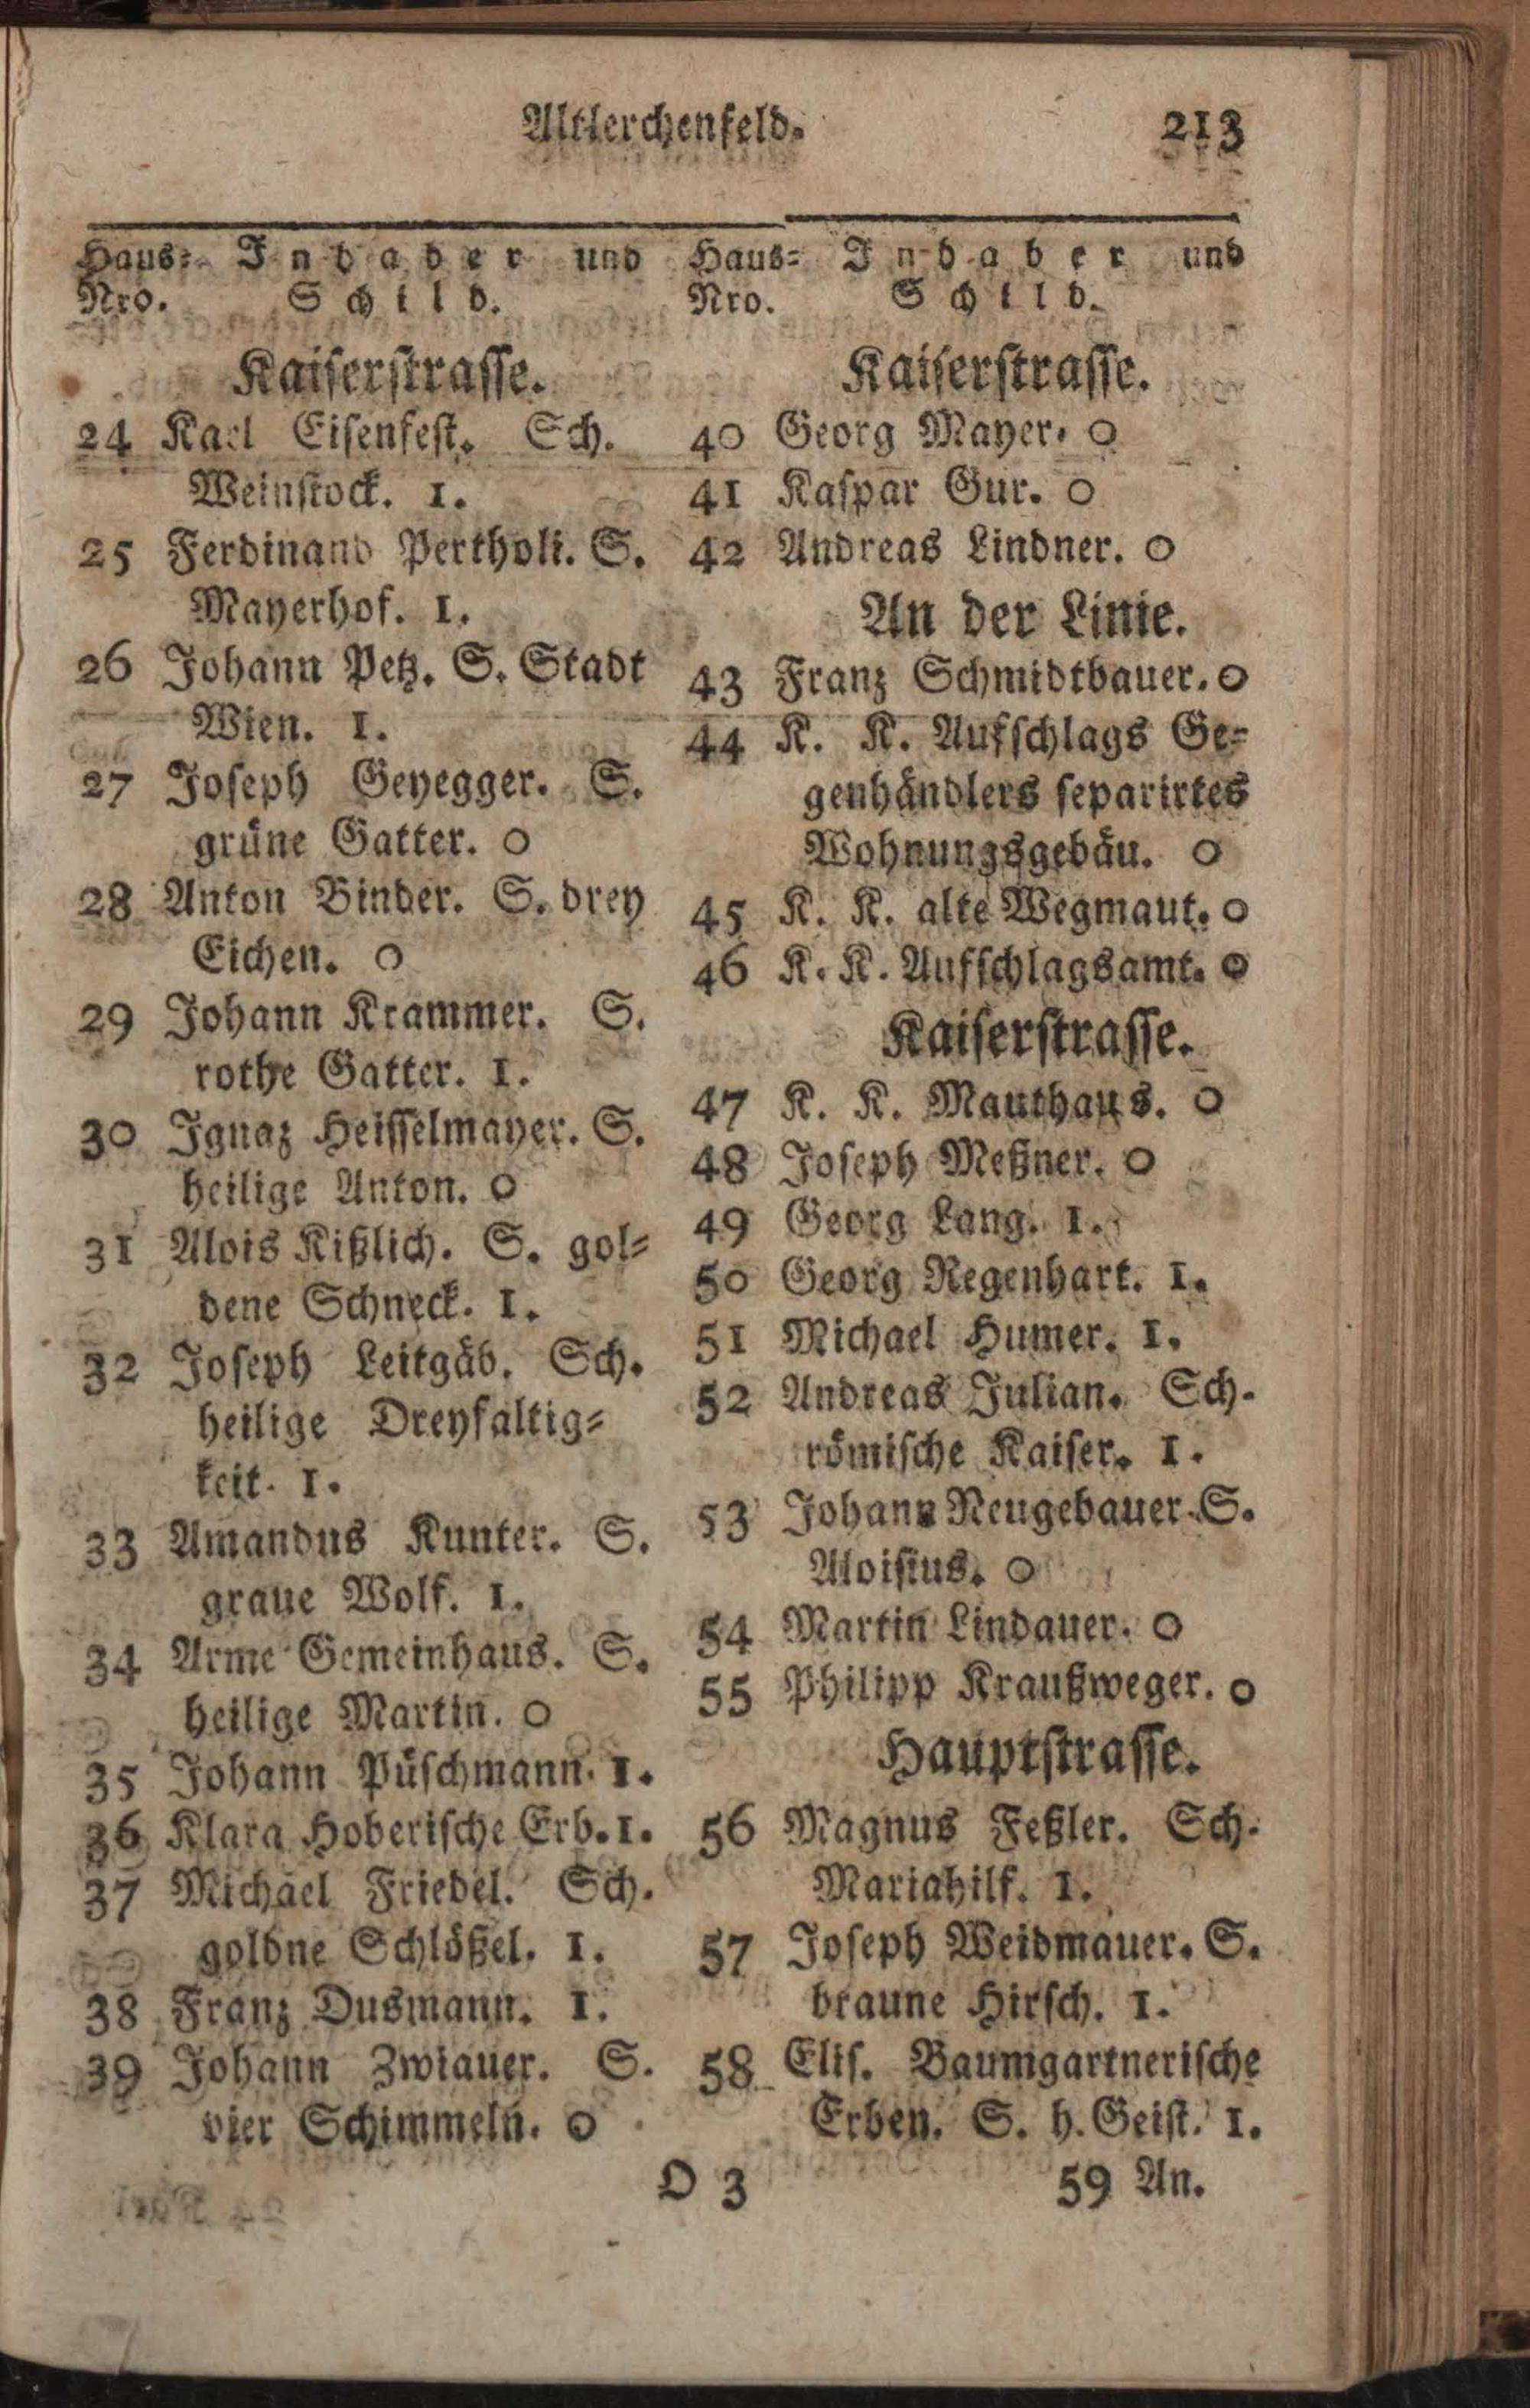 Altlerchenfeld.
213
Haus= Inhaber und
Nro. Schild.
Kaiserstrasse.
24 Karl Eisenfest. Sch.
Weinstock. 1.
25 Ferdinand Pertholi. S.
Mayerhof. 1.
26 Johann Petz. S. Stadt
Wien. 1.
27 Joseph Geyegger. S.
grüne Gatter. o
28 Anton Binder. S. drey
Eichen. o
29 Johann Krammer. S.
rothe Gatter. 1.
30 Ignaz Heisselmayer. S.
heilige Anton. o
31 Alois Kißlich. S. gol=
dene Schneck. 1.
32 Joseph Leitgäb. Sch.
heilige Dreyfaltig=
keit. 1.
33 Amandus Kunter. S.
graue Wolf. 1.
34 Arme Gemeinhaus. S.
heilige Martin. o
35 Johann Püschmann. 1.
36 Klara Hoberische Erb. 1.
37 Michael Friedel. Sch.
goldne Schlößel. 1.
38 Franz Dusmann. 1.
39 Johann Zwiauer. S.
vier Schimmeln. o
Haus= Inhaber und
Nro. Schild.
Kaiserstrasse.
40 Georg Mayer. o
41 Kaspar Gur. o
42 Andreas Lindner. o
An der Linie.
43 Franz Schmidtbauer. o
44 K. K. Aufschlags Ge=
genhändlers separirtes
Wohnungsgebäu. o
45 K. K. alte Wegmaut. o
46 K. K. Aufschlagsamt. o
Kaiserstrasse.
47 K. K. Mauthaus. o
48 Joseph Meßner. o
49 Georg Lang. 1.
50 Georg Regenhart. 1.
51 Michael Humer. 1.
52 Andreas Julian. Sch.
römische Kaiser. 1.
53 Johann Neugebauer. S.
Aloisius. o
54 Martin Lindauer. o
55 Philipp Kraußweger. o
Hauptstrasse.
56 Magnus Feßler. Sch.
Mariahilf. 1.
57 Joseph Weidmauer. S.
braune Hirsch. 1.
58 Elis. Baumgartnerische
Erben. S. h. Geist. 1.
O 3
59 An.